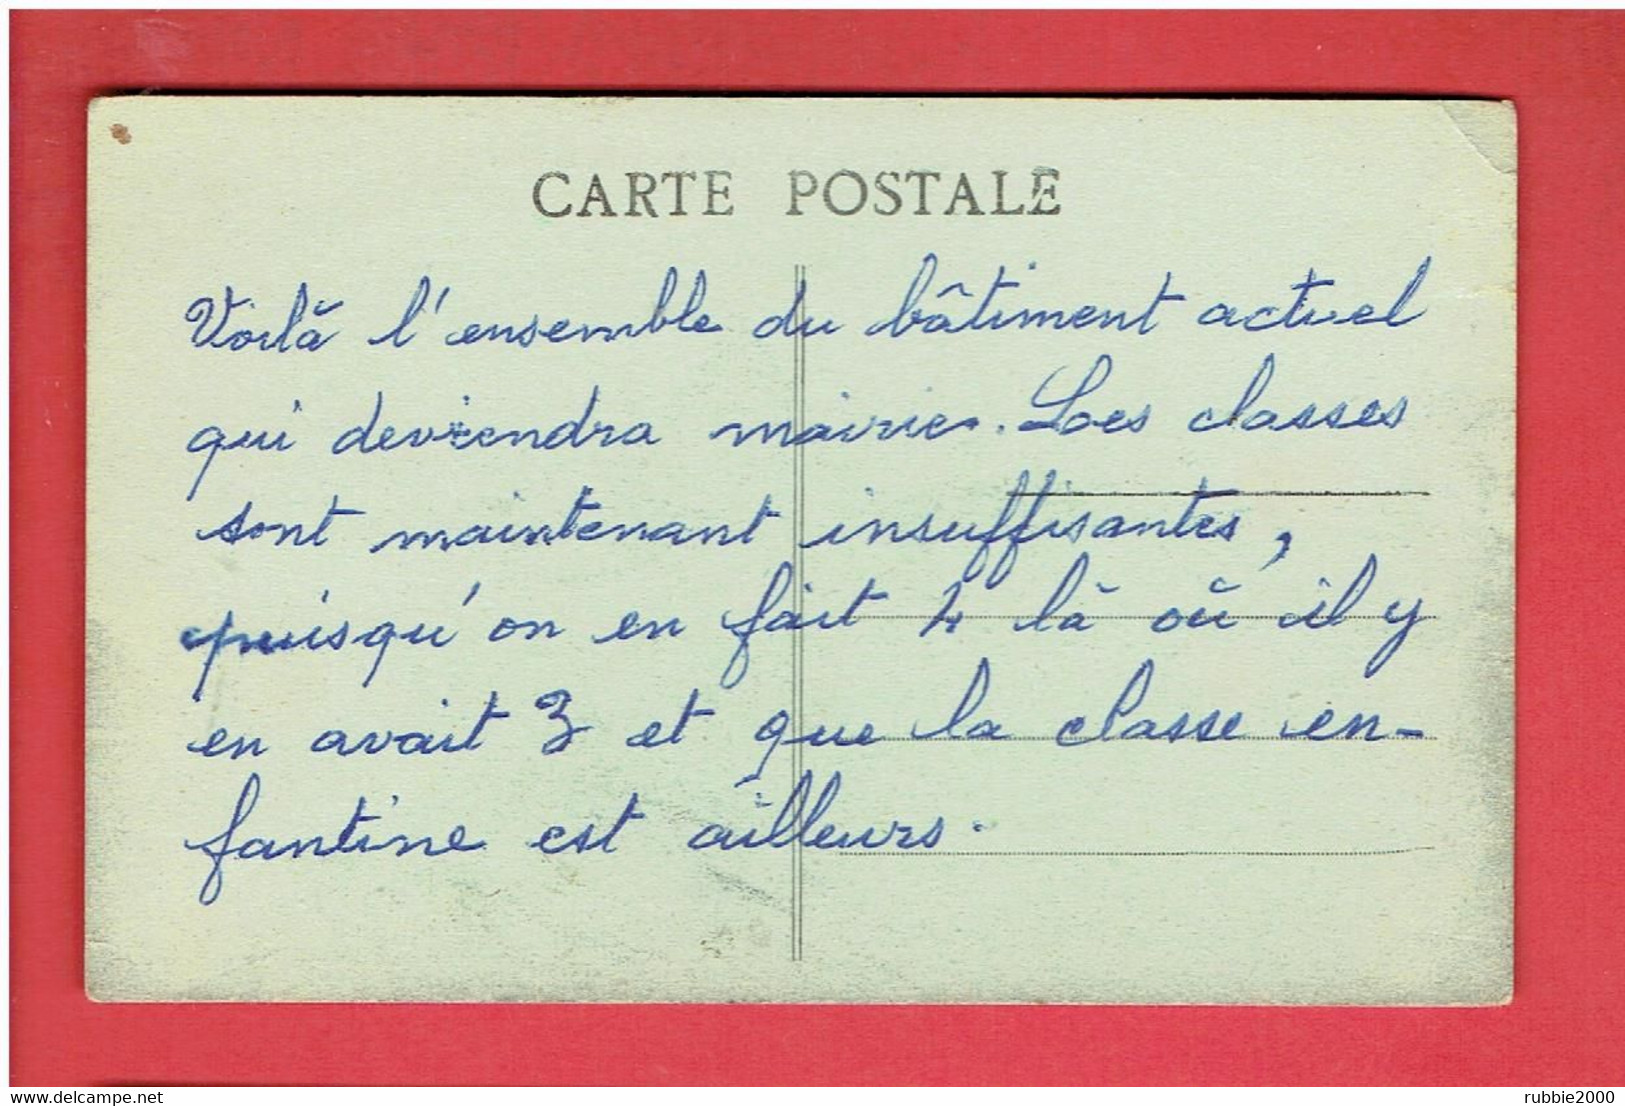 CARTE POSTALE
Voilà l'ensemble du bâtiment actuel
qui deviendra mairie. Les classes
sont maintenant insuffisantes,
puisqu'on en fait 4 là où il y
en avait 3 et que la classe en-
fantine est ailleurs.
www.delcampe.net
rubbie2000